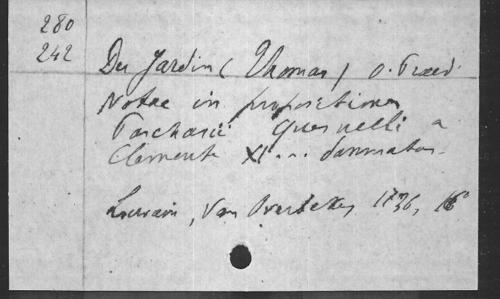 280
242
Du Jardin (Thomas) O. Praed.
Notae in propositiones
Paschasii Quesnelli a
Clemente XI... damnatas.
Louvain, Van Overbeke, 1736, 16°